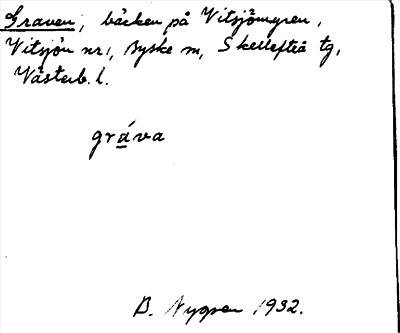 Graven, bäcken på Vitsjömyren,
Vitsjön nr 1, Byske sn, Skellefteå tg,
Västerb. l.
gráva
B. Nygren 1932.